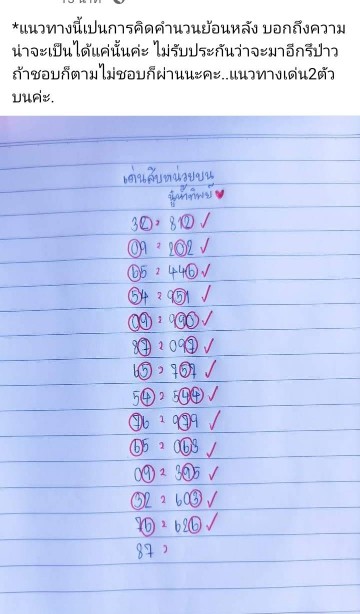 *แนวทางนี้เปนการคิดคำนวนย้อนหลัง บอกถึงความ
น่าจะเป็นได้แค่นั้นค่ะ ไม่รับประกันว่าจะมาอีกรึป่าว
ถ้าชอบก็ตามไม่ชอบก็ผ่านนะคะ..แนวทางเด่น2ตัว
บนค่ะ.
เด่นสิบหน่วยบน
32 = 812 ✓
09 = 202 ✓
65 = 446 ✓
54 = 951 ✓
09 = 990 ✓
87 = 097 ✓
65 = 757 ✓
54 = 544 ✓
76 = 979 ✓
65 = 063 ✓
09 = 395 ✓
32 = 603 ✓
76 = 626 ✓
87 =